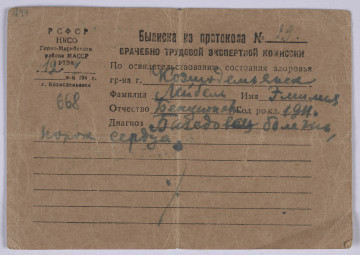 РСФСР
НКСО
Горно-Марийского
района МАССР
ВТЭК
194 г.
г. Козмодемьянск
668
Выписка из протокола № 19.
ВРАЧЕБНО ТРУДОВОЙ ЭКСПЕРТНОЙ КОМИССИИ
По освидетельствованию состояния здоровья
гр-на г. Козмодемьянска
Фамилия Мибель Имя Эмилия
Отчество Год рожд. 1911
Диагноз Базедовая болезнь,
порок сердца.